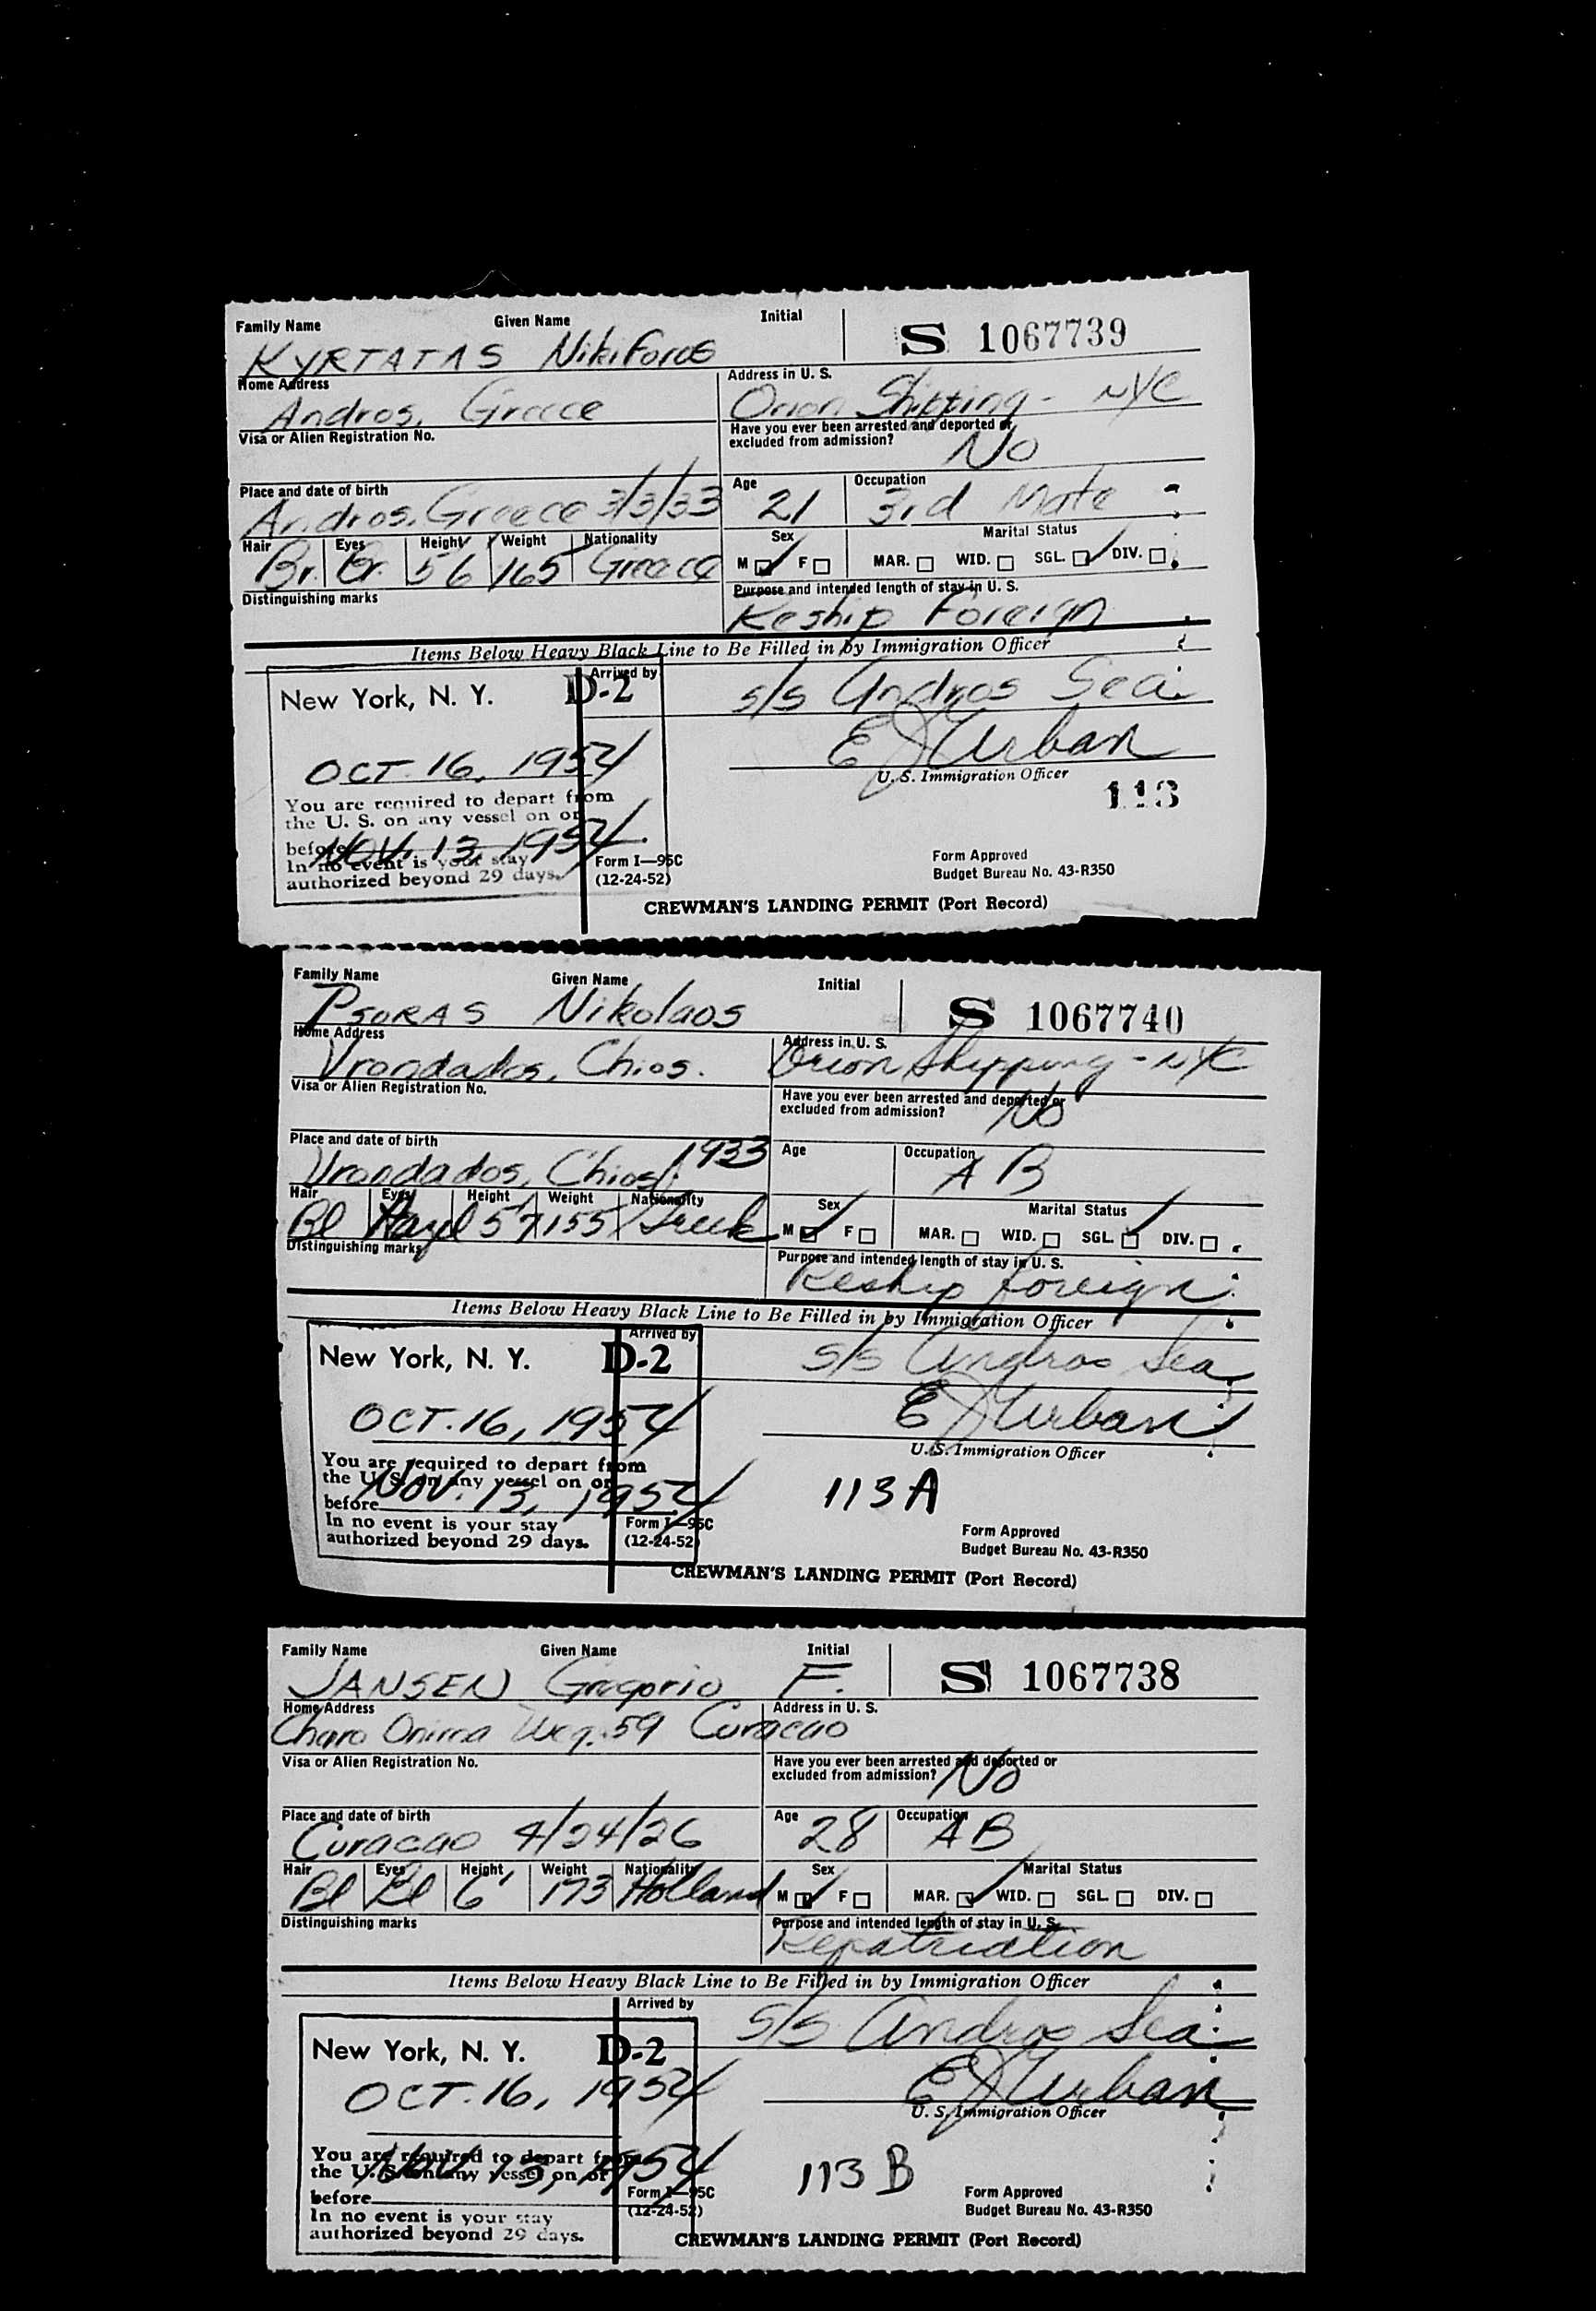 Family Name Given Name Initial
S 1067739
KYRTATAS Nikiforos
Home Address Address in U. S.
Andros, Greece Orion Shipping - NYC
Visa or Alien Registration No. Have you ever been arrested and deported or
excluded from admission? No
Place and date of birth Age Occupation
Andros. Greece 3/3/33 21 3rd Mate
Hair Eyes Height Weight Nationality Sex Marital Status
Br. Br. 56 165 Greece M F MAR. WID. SGL. DIV.
Distinguishing marks Purpose and intended length of stay in U. S.
Reship Foreign
Items Below Heavy Black Line to Be Filled in by Immigration Officer
Arrived by
New York, N. Y. D-2 s/s Andros Sea
E J Urban
OCT. 16, 1954
U. S. Immigration Officer
You are required to depart from 113
the U. S. on any vessel on or
before NOV. 13, 1954
In no event is your stay Form I—95C Form Approved
authorized beyond 29 days. (12-24-52) Budget Bureau No. 43-R350
CREWMAN'S LANDING PERMIT (Port Record)
Family Name Given Name Initial
S 1067740
PSORAS Nikolaos
Home Address Address in U. S.
Vrondados, Chios. Orion Shipping - NYC
Visa or Alien Registration No. Have you ever been arrested and deported or
excluded from admission? No
Place and date of birth Age Occupation
Vrondados, Chios 1933 AB
Hair Eyes Height Weight Nationality Sex Marital Status
Bl Hazel 57 155 Greek M F MAR. WID. SGL. DIV.
Distinguishing marks Purpose and intended length of stay in U. S.
Reship foreign
Items Below Heavy Black Line to Be Filled in by Immigration Officer
Arrived by
New York, N. Y. D-2 s/s Andros Sea
OCT. 16, 1954 E J Urban
U. S. Immigration Officer
You are required to depart from
the U. S. on any vessel on or 113A
before NOV. 13, 1954
In no event is your stay Form I—95C Form Approved
authorized beyond 29 days. (12-24-52) Budget Bureau No. 43-R350
CREWMAN'S LANDING PERMIT (Port Record)
Family Name Given Name Initial
S 1067738
JANSEN Gregorio F.
Home Address Address in U. S.
Weg. 59 Curacao
Visa or Alien Registration No. Have you ever been arrested and deported or
excluded from admission? No
Place and date of birth Age Occupation
Curacao 4/24/26 28 AB
Hair Eyes Height Weight Nationality Sex Marital Status
Bl Bl 6' 173 Holland M F MAR. WID. SGL. DIV.
Distinguishing marks Purpose and intended length of stay in U. S.
Repatriation
Items Below Heavy Black Line to Be Filled in by Immigration Officer
Arrived by
New York, N. Y. D-2 s/s Andros Sea
OCT. 16, 1954 E J Urban
U. S. Immigration Officer
You are required to depart from
the U. S. on any vessel on or 113B
before NOV. 13, 1954
In no event is your stay Form I—95C Form Approved
authorized beyond 29 days. (12-24-52) Budget Bureau No. 43-R350
CREWMAN'S LANDING PERMIT (Port Record)